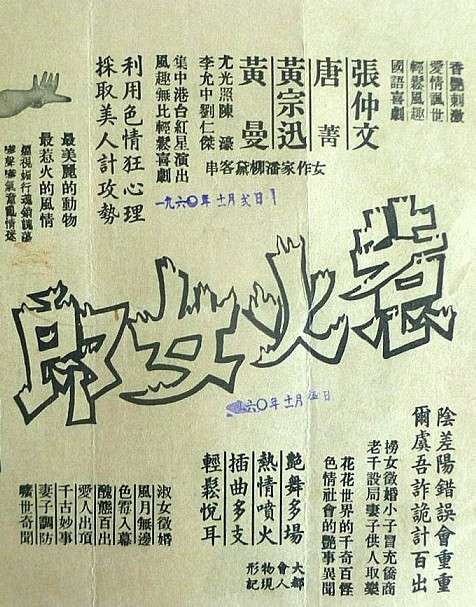 香艷刺激
愛情諷世
輕鬆風趣
國語喜劇
張仲文
唐菁
黃宗迅
黃曼
尤光照陳濠
李允中劉仁傑
女作家潘柳黛客串
集中港台紅星演出
風趣無比輕鬆喜劇
利用色情狂心理
採取美人計攻勢
最美麗的動物
最惹火的風情
視媚行魂銷
嗲聲嗲氣意亂情迷
一九六〇年十一月貳日
惹火女郎
六〇年十一月伍日
陰差陽錯誤會重重
爾虞吾詐詭計百出
撈女徵婚小子冒充僑商
老千設局妻子供人取樂
花花世界的千奇百怪
色情社會的艷事異聞
艷舞多場
熱情噴火
插曲多支
輕鬆悅耳
大都
會人
物現
形記
淑女徵婚
風月無邊
色入幕
醜態百出
愛人出頂
千古妙事
妻子調防
曠世奇聞